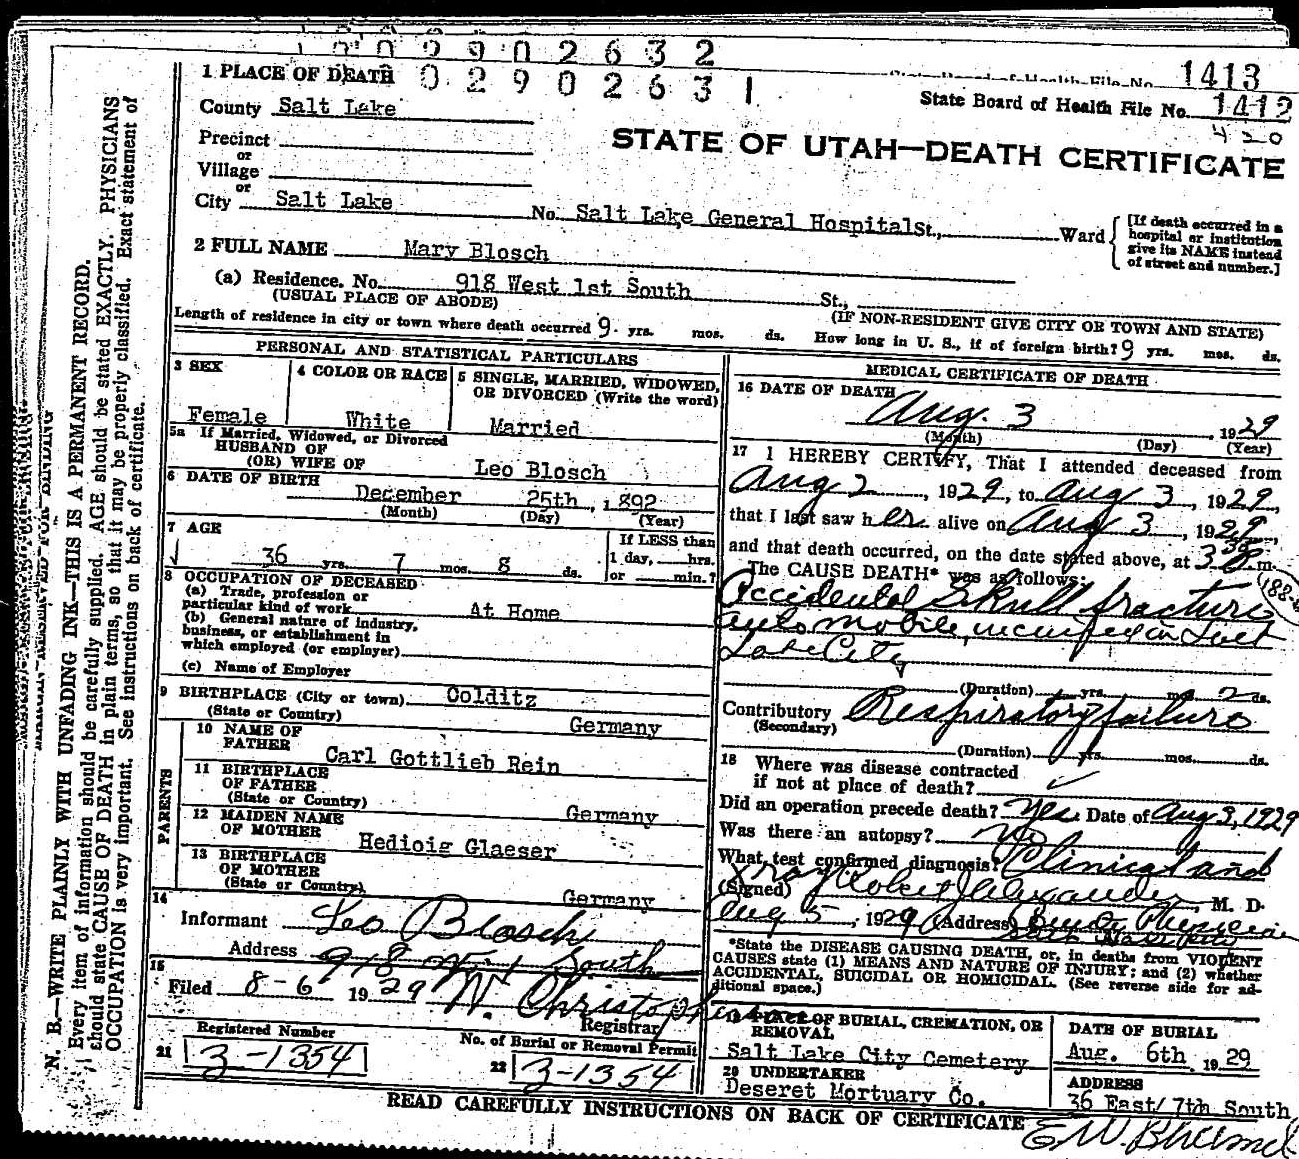 1 0 0 2 9 0 2 6 3 2
0 2 9 0 2 6 3 1
State Board of Health File No. 1413
State Board of Health File No. 1412
420
STATE OF UTAH—DEATH CERTIFICATE
1 PLACE OF DEATH
County Salt Lake
Precinct
or
Village
or
City Salt Lake No. Salt Lake General Hospital St., Ward
[If death occurred in a hospital or institution give its NAME instead of street and number.]
2 FULL NAME Mary Blosch
(a) Residence. No. 918 West 1st South St.,
(USUAL PLACE OF ABODE) (IF NON-RESIDENT GIVE CITY OR TOWN AND STATE)
Length of residence in city or town where death occurred 9 yrs. mos. ds. How long in U. S., if of foreign birth? 9 yrs. mos. ds.
PERSONAL AND STATISTICAL PARTICULARS
3 SEX
Female
4 COLOR OR RACE
White
5 SINGLE, MARRIED, WIDOWED,
OR DIVORCED (Write the word)
Married
5a If Married, Widowed, or Divorced
HUSBAND OF
(OR) WIFE OF Leo Blosch
6 DATE OF BIRTH
December 25th, 1892
(Month) (Day) (Year)
7 AGE
36 yrs. 7 mos. 8 ds.
If LESS than
1 day, hrs.
or min.?
8 OCCUPATION OF DECEASED
(a) Trade, profession or
particular kind of work At Home
(b) General nature of industry,
business, or establishment in
which employed (or employer)
(c) Name of Employer
9 BIRTHPLACE (City or town) Colditz
(State or Country) Germany
PARENTS
10 NAME OF
FATHER Carl Gottlieb Rein
11 BIRTHPLACE
OF FATHER
(State or Country) Germany
12 MAIDEN NAME
OF MOTHER Hedioig Glaeser
13 BIRTHPLACE
OF MOTHER
(State or Country) Germany
14
Informant Leo Blosch
Address 918 W. 1 South
15
Filed 8-6 1929
Registrar
Registered Number
21 3-1354
No. of Burial or Removal Permit
22 3-1354
MEDICAL CERTIFICATE OF DEATH
16 DATE OF DEATH
Aug. 3, 1929
(Month) (Day) (Year)
17 I HEREBY CERTIFY, That I attended deceased from
Aug 2, 1929, to Aug 3, 1929,
that I last saw her alive on Aug 3, 1929,
and that death occurred, on the date stated above, at 3 m.
The CAUSE DEATH* was as follows:
Accidental Skull fracture
automobile, incurred in Salt
Lake City
(Duration) yrs. mos. 2 ds.
Contributory Respiratory failure
(Secondary)
(Duration) yrs. mos. ds.
18 Where was disease contracted
if not at place of death?
Did an operation precede death? Yes. Date of Aug 3, 1929
Was there an autopsy? No
What test confirmed diagnosis? Clinical and
Xray
(Signed) Robert J Alexander, M. D.
Aug 5, 1929 (Address) County Physician
*State the DISEASE CAUSING DEATH, or, in deaths from VIOLENT
CAUSES state (1) MEANS AND NATURE OF INJURY; and (2) whether
ACCIDENTAL, SUICIDAL OR HOMICIDAL. (See reverse side for ad-
ditional space.)
19 PLACE OF BURIAL, CREMATION, OR
REMOVAL
Salt Lake City Cemetery
DATE OF BURIAL
Aug. 6th 1929
20 UNDERTAKER
Deseret Mortuary Co.
ADDRESS
36 East/ 7th South
READ CAREFULLY INSTRUCTIONS ON BACK OF CERTIFICATE
N. B.—WRITE PLAINLY WITH UNFADING INK—THIS IS A PERMANENT RECORD.
Every item of information should be carefully supplied. AGE should be stated EXACTLY. PHYSICIANS
should state CAUSE OF DEATH in plain terms, so that it may be properly classified. Exact statement of
OCCUPATION is very important. See instructions on back of certificate.